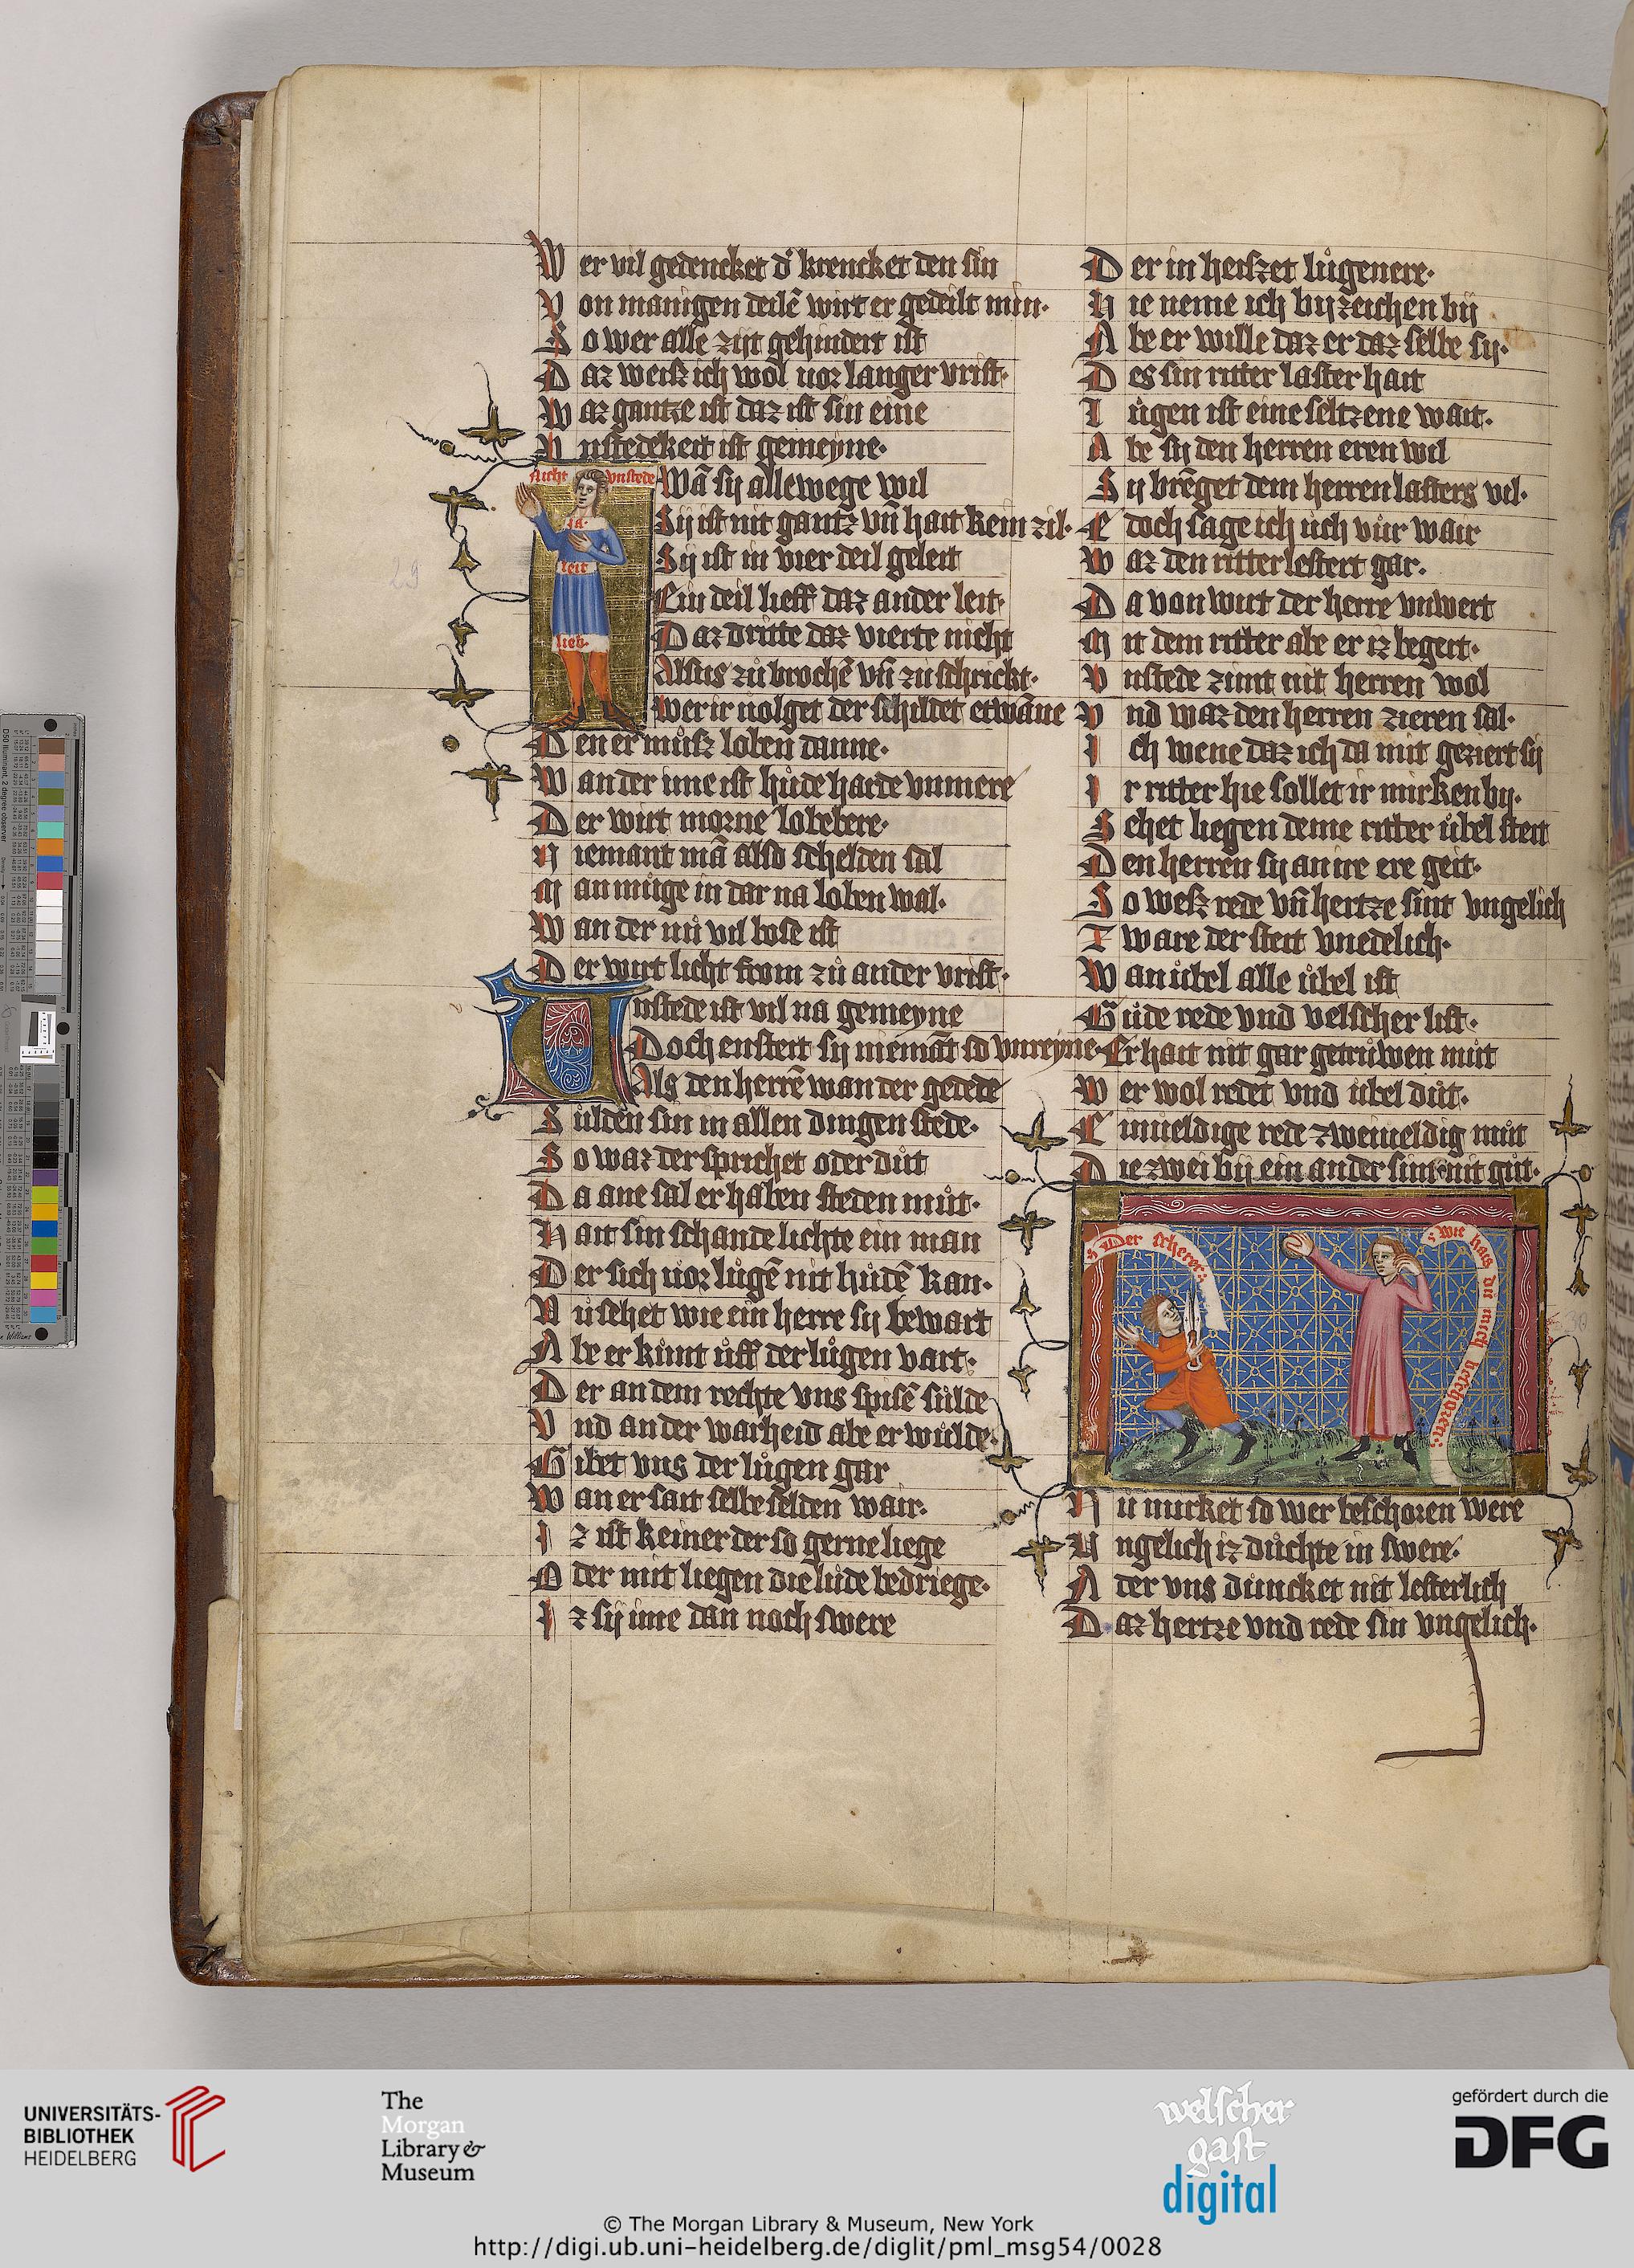 Wer vil gedencket d' krencket den sin
Von manigen deilē wirt er gedeilt min·
So wer alle zijt gehindert ist
Daz weisz ich wol uor langer vrist·
Waz gantze ist daz ist sin eine
Vnstedekeit ist gemeyne·
Nicht vnstede
ia·
leit
lieb·
Wā sij allewege wil
Sij ist nit gantz vn̄ hait kein zil·
Sij ist in vier deil geleit
Ein deil lieff daz ander leit·
Daz dritte daz vierte nicht
Alsus zů brochē vn̄ zu schrickt·
Wer ir uolget der schildet etwāne
Den er můsz loben danne·
Wan der ime ist hůde harte vnmere
Der wirt morne lobebere·
Niemant mā also schelden sal
Man můge in dar na loben wal·
Wan der nů vil bose ist
Der wirt licht from zů ander vrist·
Vnstede ist vil na gemeyne
Doch enstert sij niemāt so vnreyne·
Als den herrē wan der gedede
Sulden sin in allen dingen stede·
So waz der sprichet oder důt
Da ane sal er haben steden můt·
Hait sin schande lichte ein man
Der sich uor lůgē nit hůdē kan·
Nu sehet wie ein herre sij bewart
Abe er kůmt ůff der lůgen vart·
Der an dem rechte vns spisē sůlde
Vnd an der warheid abe er wůlde·
Gibet vns der lůgen gar
Wan er sait selbe selden wair·
Iz ist keiner der so gerne liege
Oder mit liegen die lude bedriege·
Iz sij ime dan noch swere
Der in heiszet lůgenere·
Hie neme ich bij zeichen bij
Abe er wille daz er daz selbe sij·
Des sin ritter laster hait
Lůgen ist eine seltzene wait·
Abe sij den herren eren wil
Sij brēget dem herren lasters vil·
Edoch sage ich ůch vůr wair
Waz den ritter lestert gar·
Da von wirt der herre vnwert
Mit dem ritter abe er iz begert·
Vnstede zimt nit herren wol
Vnd waz den herren zieren sal·
Ich wene daz ich da mit geziert sij
Ir ritter hie sollet ir mirken bij·
Sehet liegen deme ritter ůbel steit
Den herren sij an ire ere geit·
So wesz rede vn̄ hertze sint vngelich
Tware der steit vnedelich·
Wan ůbel alle ůbel ist
Gůde rede vnd velscher list·
Er hait nit gar getrůwen můt
Wer wol redet vnd ůbel důt·
Einueldige rede zweiueldig můt
Die zwei bij ein ander sint nit gůt·
Der scherer
Wie has du mich beschoren
Nu mirket so wer beschoren were
Vngelich iz důchte in swere·
Ader vns důncket nit lesterlich
Daz hertze vnd rede sin vngelich·
29
30
UNIVERSITÄTS-
BIBLIOTHEK
HEIDELBERG
The
Morgan
Library &
Museum
welscher
gast
digital
gefördert durch die
DFG
© The Morgan Library & Museum, New York
http://digi.ub.uni-heidelberg.de/diglit/pml_msg54/0028